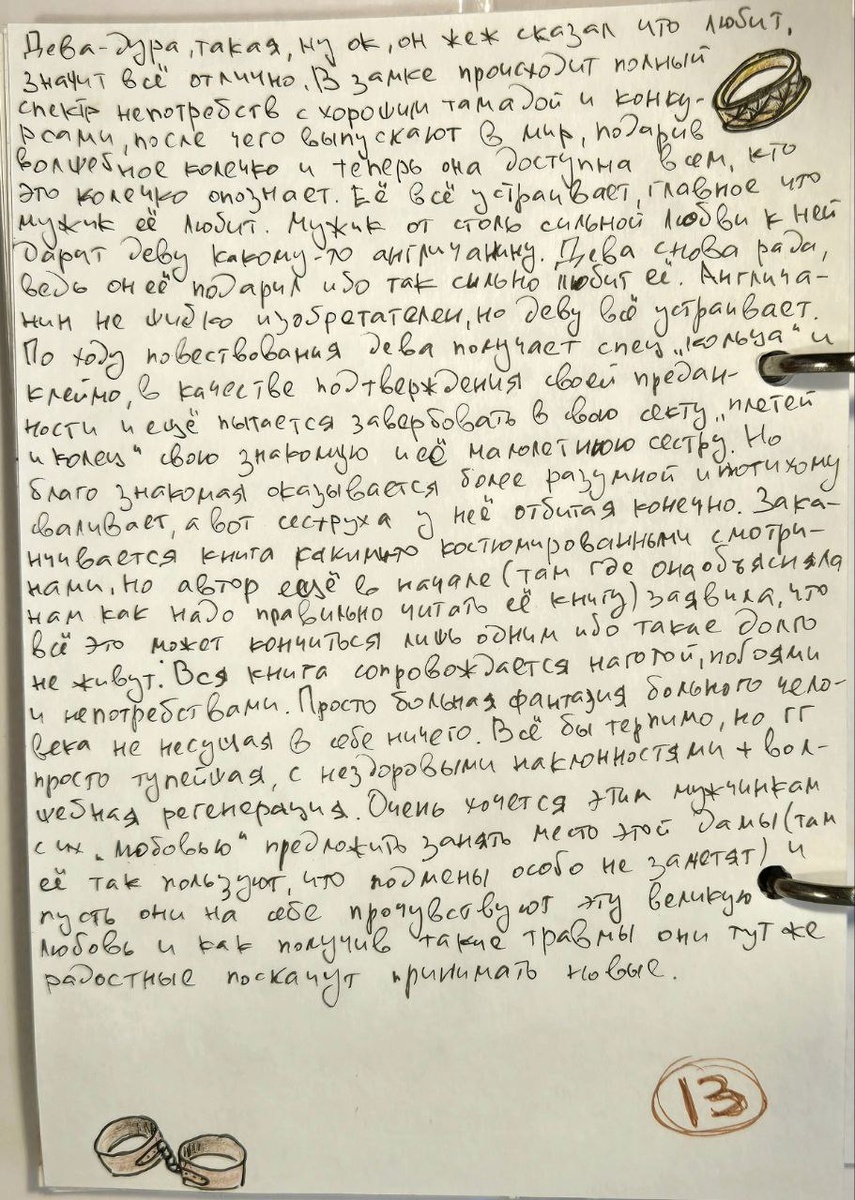 Дева-дура, такая, ну ок, он жеж сказал что любит,
значит всё отлично. В замке происходит полный
спектр непотребств с хорошим тамадой и конку-
рсами, после чего выпускают в мир, подарив
волшебное колечко и теперь она доступна всем, кто
это колечко опознает. Её всё устраивает, главное что
мужик её любит. Мужик от столь сильной любви к ней
дарит деву какому-то англичанину. Дева снова рада,
ведь он её подарил ибо так сильно любит её. Англича-
нин не шибко изобретателен, но деву всё устраивает.
По ходу повествования дева получает спец „кольца“ и
клеймо, в качестве подтверждения своей предан-
ности и ещё пытается завербовать в свою секту „плетей
и колец“ свою знакомую и её малолетнюю сестру. Но
благо знакомая оказывается более разумной и потихому
сваливает, а вот сеструха у неё отбитая конечно. Зака-
нчивается книга какими-то костюмированными смотри-
нами, но автор ещё в начале (там где она объясняла
нам как надо правильно читать её книгу) заявила, что
всё это может кончиться лишь одним ибо такие долго
не живут. Вся книга сопровождается наготой, побоями
и непотребствами. Просто больная фантазия больного чело-
века не несущая в себе ничего. Всё бы терпимо, но ГГ
просто тупейшая, с нездоровыми наклонностями + вол-
шебная регенерация. Очень хочется этим мужчинкам
с их „любовью“ предложить занять место этой дамы (там
её так пользуют, что подмены особо не заметят) и
пусть они на себе прочувствуют эту великую
любовь и как получив такие травмы они тут же
радостные поскачут принимать новые.
13